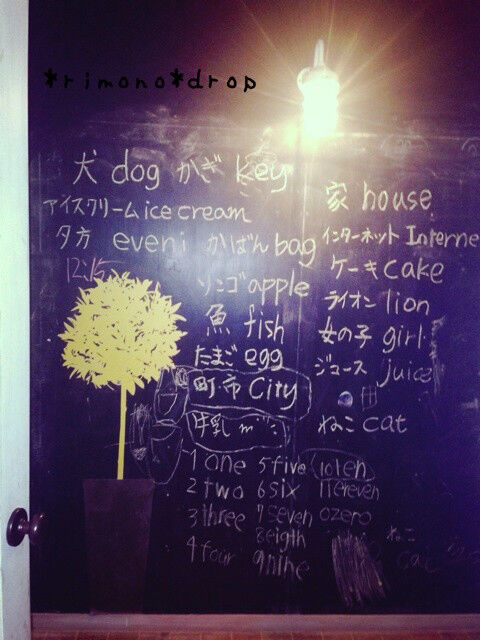 *rimono*drop
犬 dog かぎ key
家 house
アイスクリーム ice cream
夕方 eveni かばん bag インターネット Interne
12:15
リンゴ apple ケーキ cake
魚 fish ライオン lion
たまご egg 女の子 girl
町・市 City ジュース juice
牛乳 m
ねこ cat
1 one 5 five 10 ten
2 two 6 six 11 ereven
3 three 7 seven 0 zero
8 eigth ねこ
4 four 9 nine cat